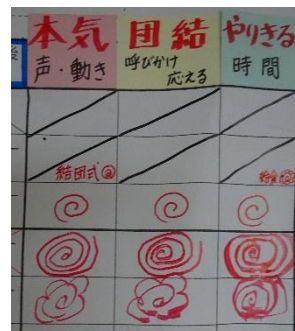 本気
声・動き
団結
呼びかけ
応える
やりきる
時間
結団式